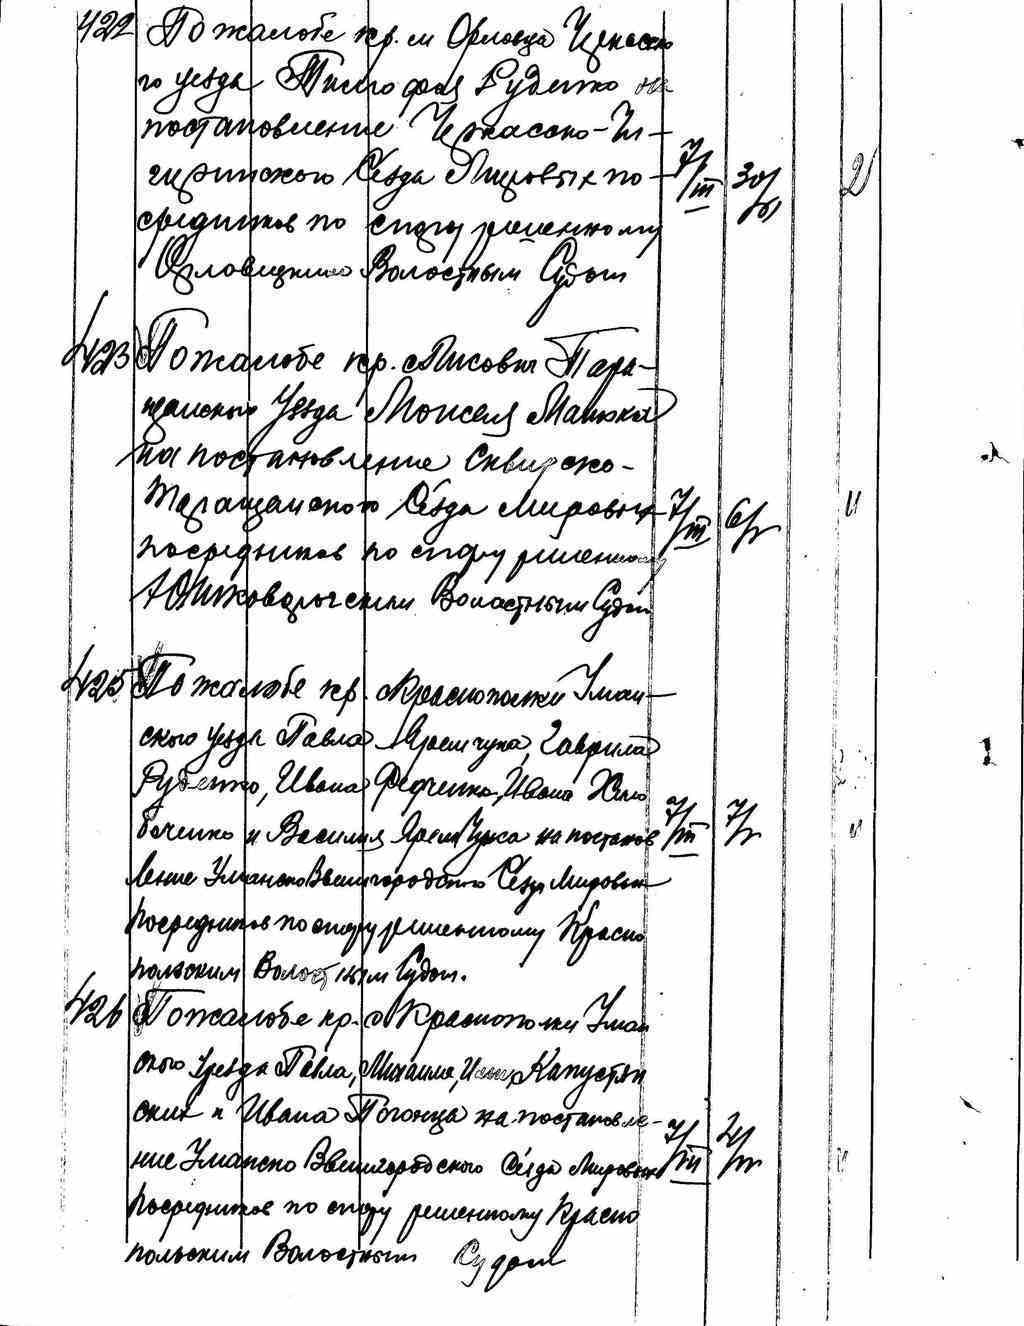 422 По жалобе кр. м Орловца Черкасско
го уезда Тимофея Руденко на
постановление Черкасско-Чи-
гиринского Съезда Мировых по-
средников по спору решенному
7/III 30/VI 2
Орловецким Волостным Судом
423 По жалобе кр. с Лисович Тара-
щанского Уезда Моисея Манюка
на постановление Сквирско-
Таращанского Съезда Мировых
7/III 6/V "
посредников по спору решенному
Волостным Судом
425 По жалобе кр. с Краснополки Уман-
ского уезда Павла Яремчука, Гаврила
Руденко, Ивана Федченко, Ивана
и Василия Яремчука на постанов
7/III 7/V "
ление Уманско Звенигородского Съезда Мировых
посредников по спору решенному Красно
польским Волостным Судом.
426 По жалобе кр. с Краснополки Уман
ского Уезда Павла, Михаила, Капустян
ских и Ивана Погонца на постановле-
ние Уманско Звенигородского Съезда Мировых
7/III "
посредников по спору решенному Красно
польским Волостным Судом